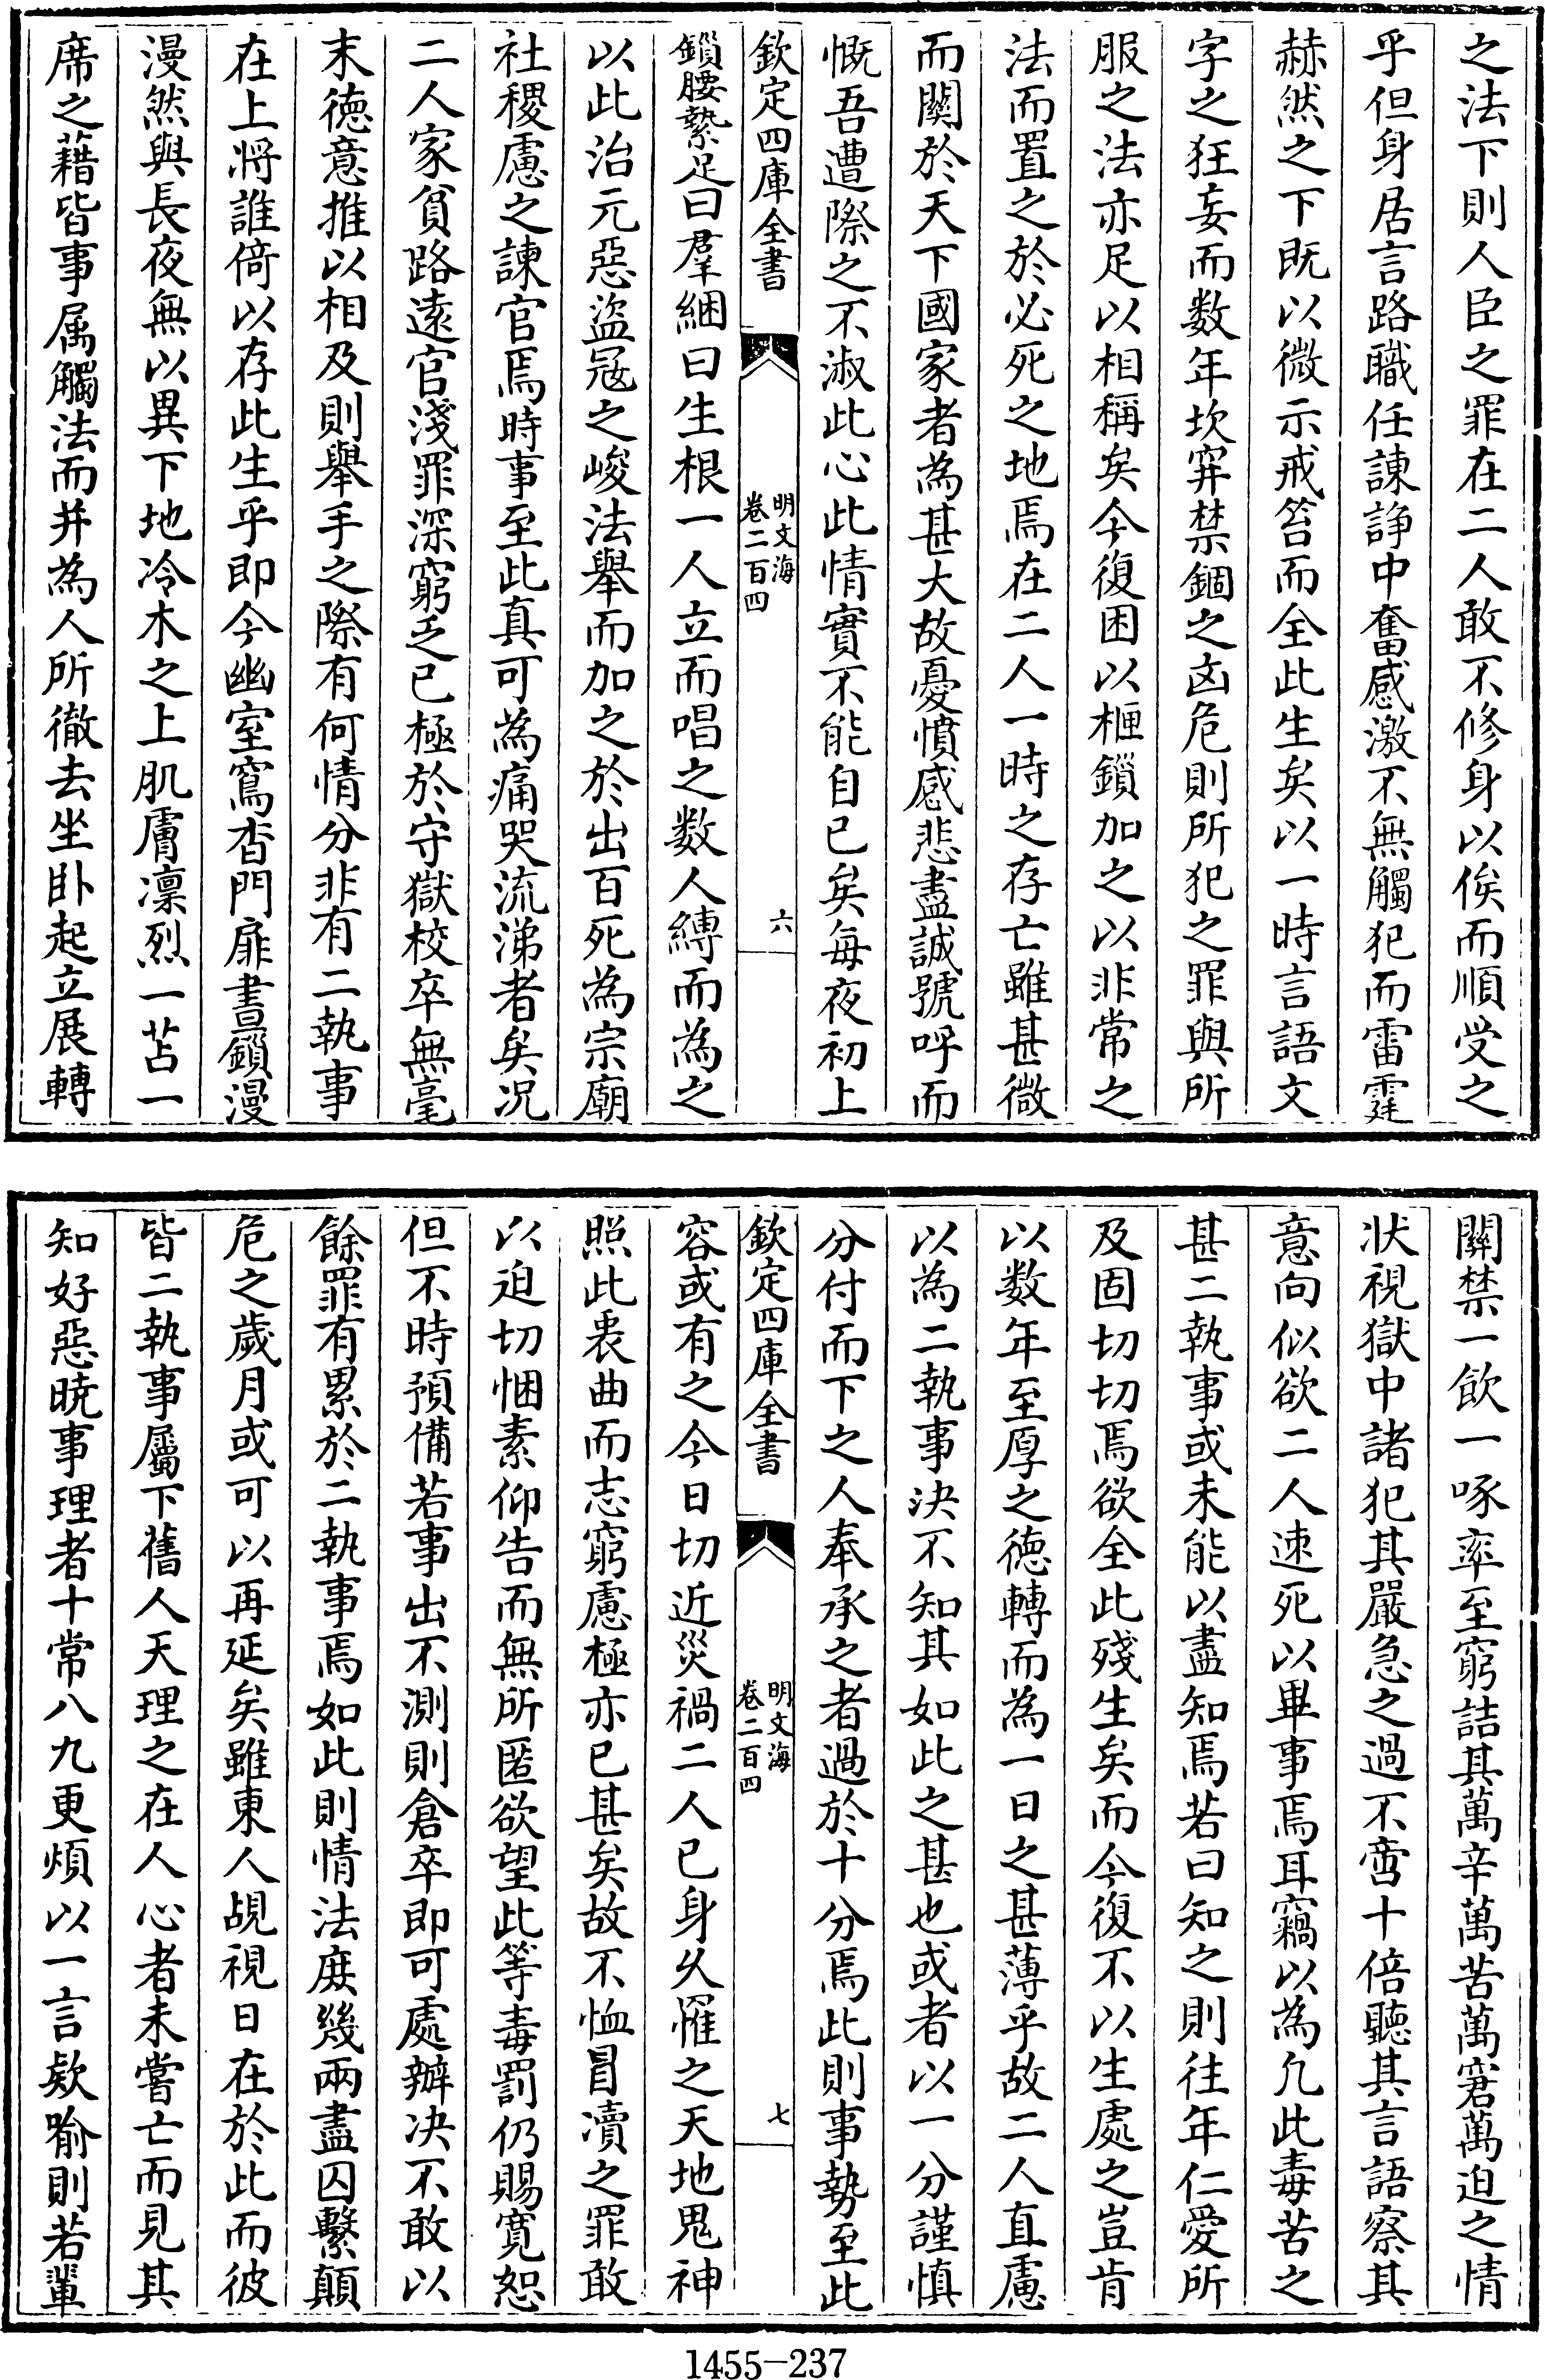 之法下則人臣之罪在二人敢不修身以俟而順受之
乎但身居言路職任諫諍中奮感激不無觸犯而雷霆
赫然之下既以微示戒笞而全此生矣以一時言語文
字之狂妄而数年坎穽禁錮之凶危則所犯之罪與所
服之法亦足以相稱矣今復困以柙鎖加之以非常之
法而置之於必死之地焉在二人一時之存亡雖甚微
而關於天下國家者為甚大故憂憤感悲盡誠號呼而
慨吾遭際之不淑此心此情實不能自已矣每夜初上
欽定四庫全書
明文海
卷二百四
六
鎖腰縶足曰羣綑曰生根一人立而唱之数人縛而為之
以此治元惡盜冦之峻法舉而加之於出百死為宗廟
社稷慮之諫官焉時事至此真可為痛哭流涕者矣况
二人家貧路逺官淺罪深窮乏已極於守獄校卒無毫
末徳意推以相及則舉手之際有何情分非有二執事
在上將誰倚以存此生乎即今幽室窵杳門扉晝鎖漫
漫然與長夜無以異下地冷木之上肌膚凛烈一苫一
席之藉皆事属觸法而并為人所徹去坐卧起立展轉
關禁一飲一啄率至窮詰其萬辛萬苦萬窘萬迫之情
状視獄中諸犯其嚴急之過不啻十倍聽其言語察其
意向似欲二人速死以畢事焉耳竊以為凢此毒苦之
甚二執事或未能以盡知焉若曰知之則往年仁愛所
及固切切焉欲全此殘生矣而今復不以生處之豈肯
以数年至厚之徳轉而為一日之甚薄乎故二人直慮
以為二執事决不知其如此之甚也或者以一分謹慎
分付而下之人奉承之者過於十分焉此則事勢至此
欽定四庫全書
明文海
卷二百四
七
容或有之今日切近災禍二人已身乆罹之天地鬼神
照此衷曲而志窮慮極亦已甚矣故不恤冒瀆之罪敢
以迫切悃素仰告而無所匿欲望此等毒罰仍賜寛恕
但不時預備若事出不測則倉卒即可處辦决不敢以
餘罪有累於二執事焉如此則情法庶幾兩盡囚繫顛
危之歲月或可以再延矣雖東人覘視日在於此而彼
皆二執事屬下舊人天理之在人心者未嘗亡而見其
知好惡暁事理者十常八九更煩以一言欵喻則若輩
1455-237